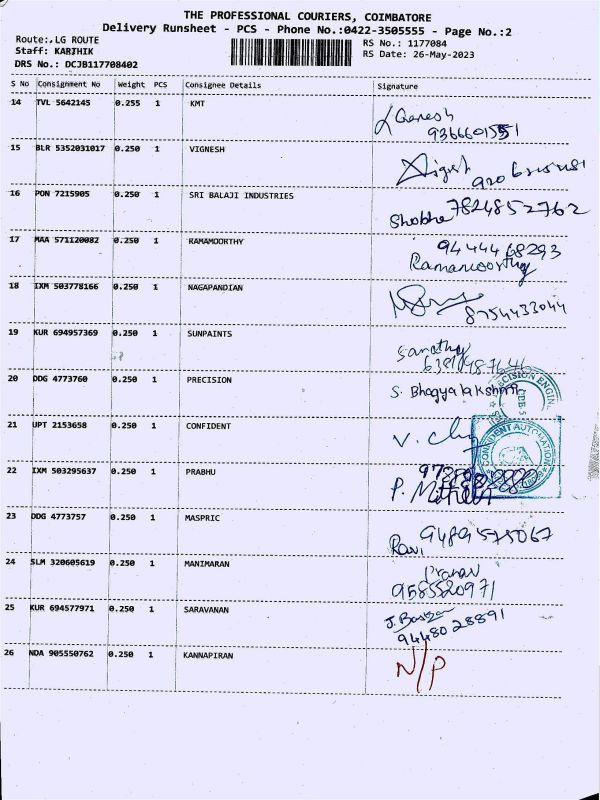 THE PROFESSIONAL COURIERS, COIMBATORE
Delivery Runsheet - PCS - Phone No.:0422-3505555 - Page No.:2
Route:.LG ROUTE
RS No.: 1177084
Staff: KARTHIK
RS Date: 26-May-2023
DRS No.: DCJB117708402
S No Consignment No Weight PCS Consignee Details Signature
14 TVL 5642145 0.255 1 KMT
Ganesh
9366601551
15 BLR 5352031017 0.250 1 VIGNESH
16 PON 7215905 0.250 1 SRI BALAJI INDUSTRIES
Shobha 7824852762
17 MAA 571120082 0.250 1 RAMAMOORTHY
9444468293
Ramamoorthy
18 IXM 503778166 0.250 1 NAGAPANDIAN
8754433044
19 KUR 694957369 0.250 1 SUNPAINTS
20 DDG 4773760 0.250 1 PRECISION
S. Bhagyalakshmi
PRECISION ENGINE
21 UPT 2153658 0.250 1 CONFIDENT
CONFIDENT AUTOMATION
22 IXM 503295637 0.250 1 PRABHU
23 DDG 4773757 0.250 1 MASPRIC
Ravi 9489575067
24 SLM 320605619 0.250 1 MANIMARAN
Pranav
9585520971
25 KUR 694577971 0.250 1 SARAVANAN
9448028891
26 NDA 905550762 0.250 1 KANNAPIRAN
N/P